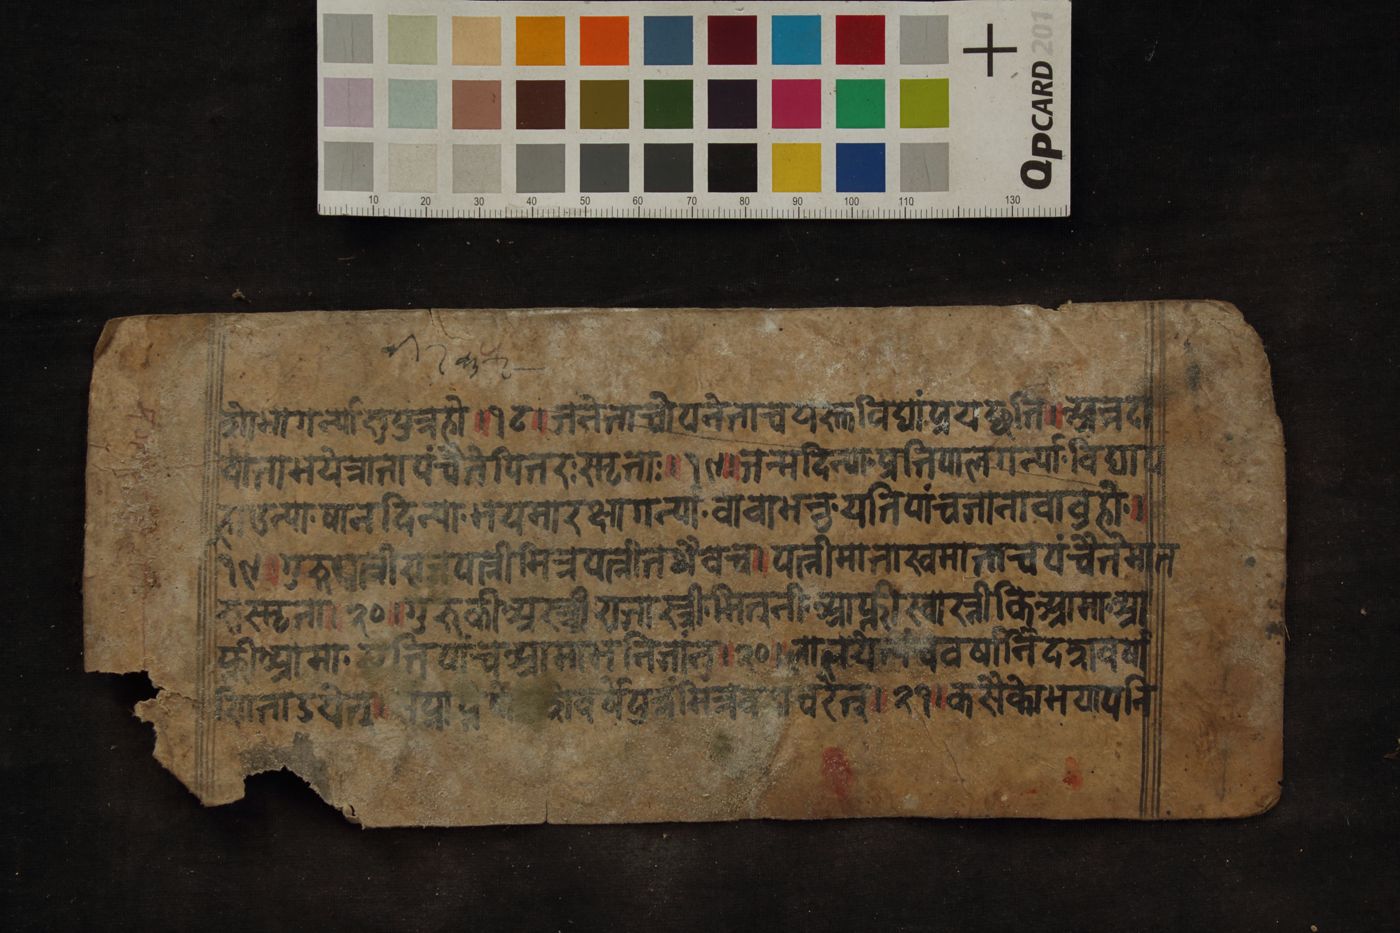 QPCARD 201
10 20 30 40 50 60 70 80 90 100 110 130
कोभागर्न्या सुपुत्रहो ॥१८॥ जनेताचोपनेताच यस्तविद्यांप्रयछति ॥ अन्नदा
याताभयेत्राता पंचैते पितरःस्मृताः ॥१९॥ जन्मदिन्या प्रतिपालगर्न्या विद्याप
षानदिन्या भयमारक्षागर्न्या वावाभन्नु यति पांचजानावावुहो ॥
१९॥ गुरुपत्नीराजपत्नीमित्रपत्नीतथैवच ॥ पत्नीमातास्वमाताच पंचैतेमात
रःस्मृता ॥२०॥ गुरुकीअस्त्री राजास्त्री मितनी आफ्नी स्वास्नीकिआमा आ
फ्नीआमा यति पांचआमाभनिजांनु ॥२०॥ लालयेत्पंचवर्षानिदशवर्षा
निताडयेत् वर्षेपुत्रंमित्रव चरेत् ॥२१॥ कसैकोभयापनि